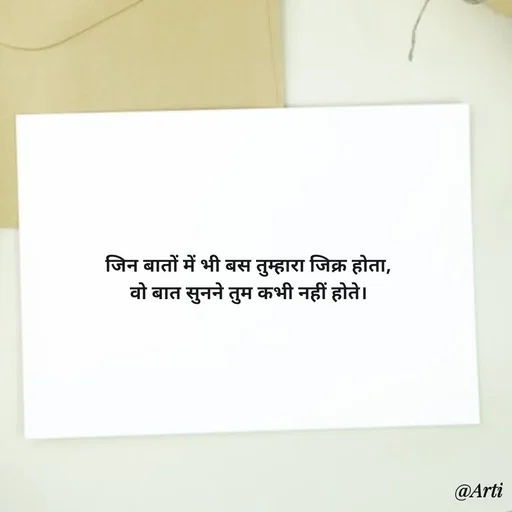 जिन बातों में भी बस तुम्हारा जिक्र होता,
वो बात सुनने तुम कभी नहीं होते।
@Arti